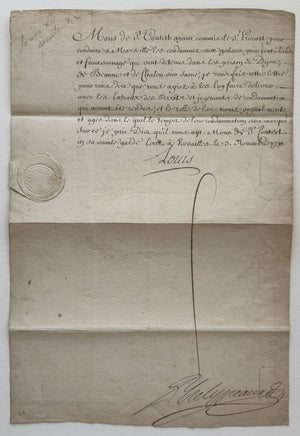 Mons de St Contest ayant commis le Sr Provost pour
conduire a Marseille les condamnés aux galeres pour contrebande
et fauxsaunage qui sont detenus dans les prisons de Dijon,
de Beaune et de Chalon sur saone, je vous fais cette lettre
pour vous dire que vous ayiés a les luy faire delivrer
avec les Extraits des Arrets et jugements de condamnation
qui auront été rendus et le rolle de leur noms, surnoms
et ages dans lequel le temps de leur condamnation sera marqué
sur ce je prie Dieu qu'il vous ayt Mons de St Contest
en sa sainte garde Ecrit à Versailles le 3. Novembre
Louis
Phelypeaux